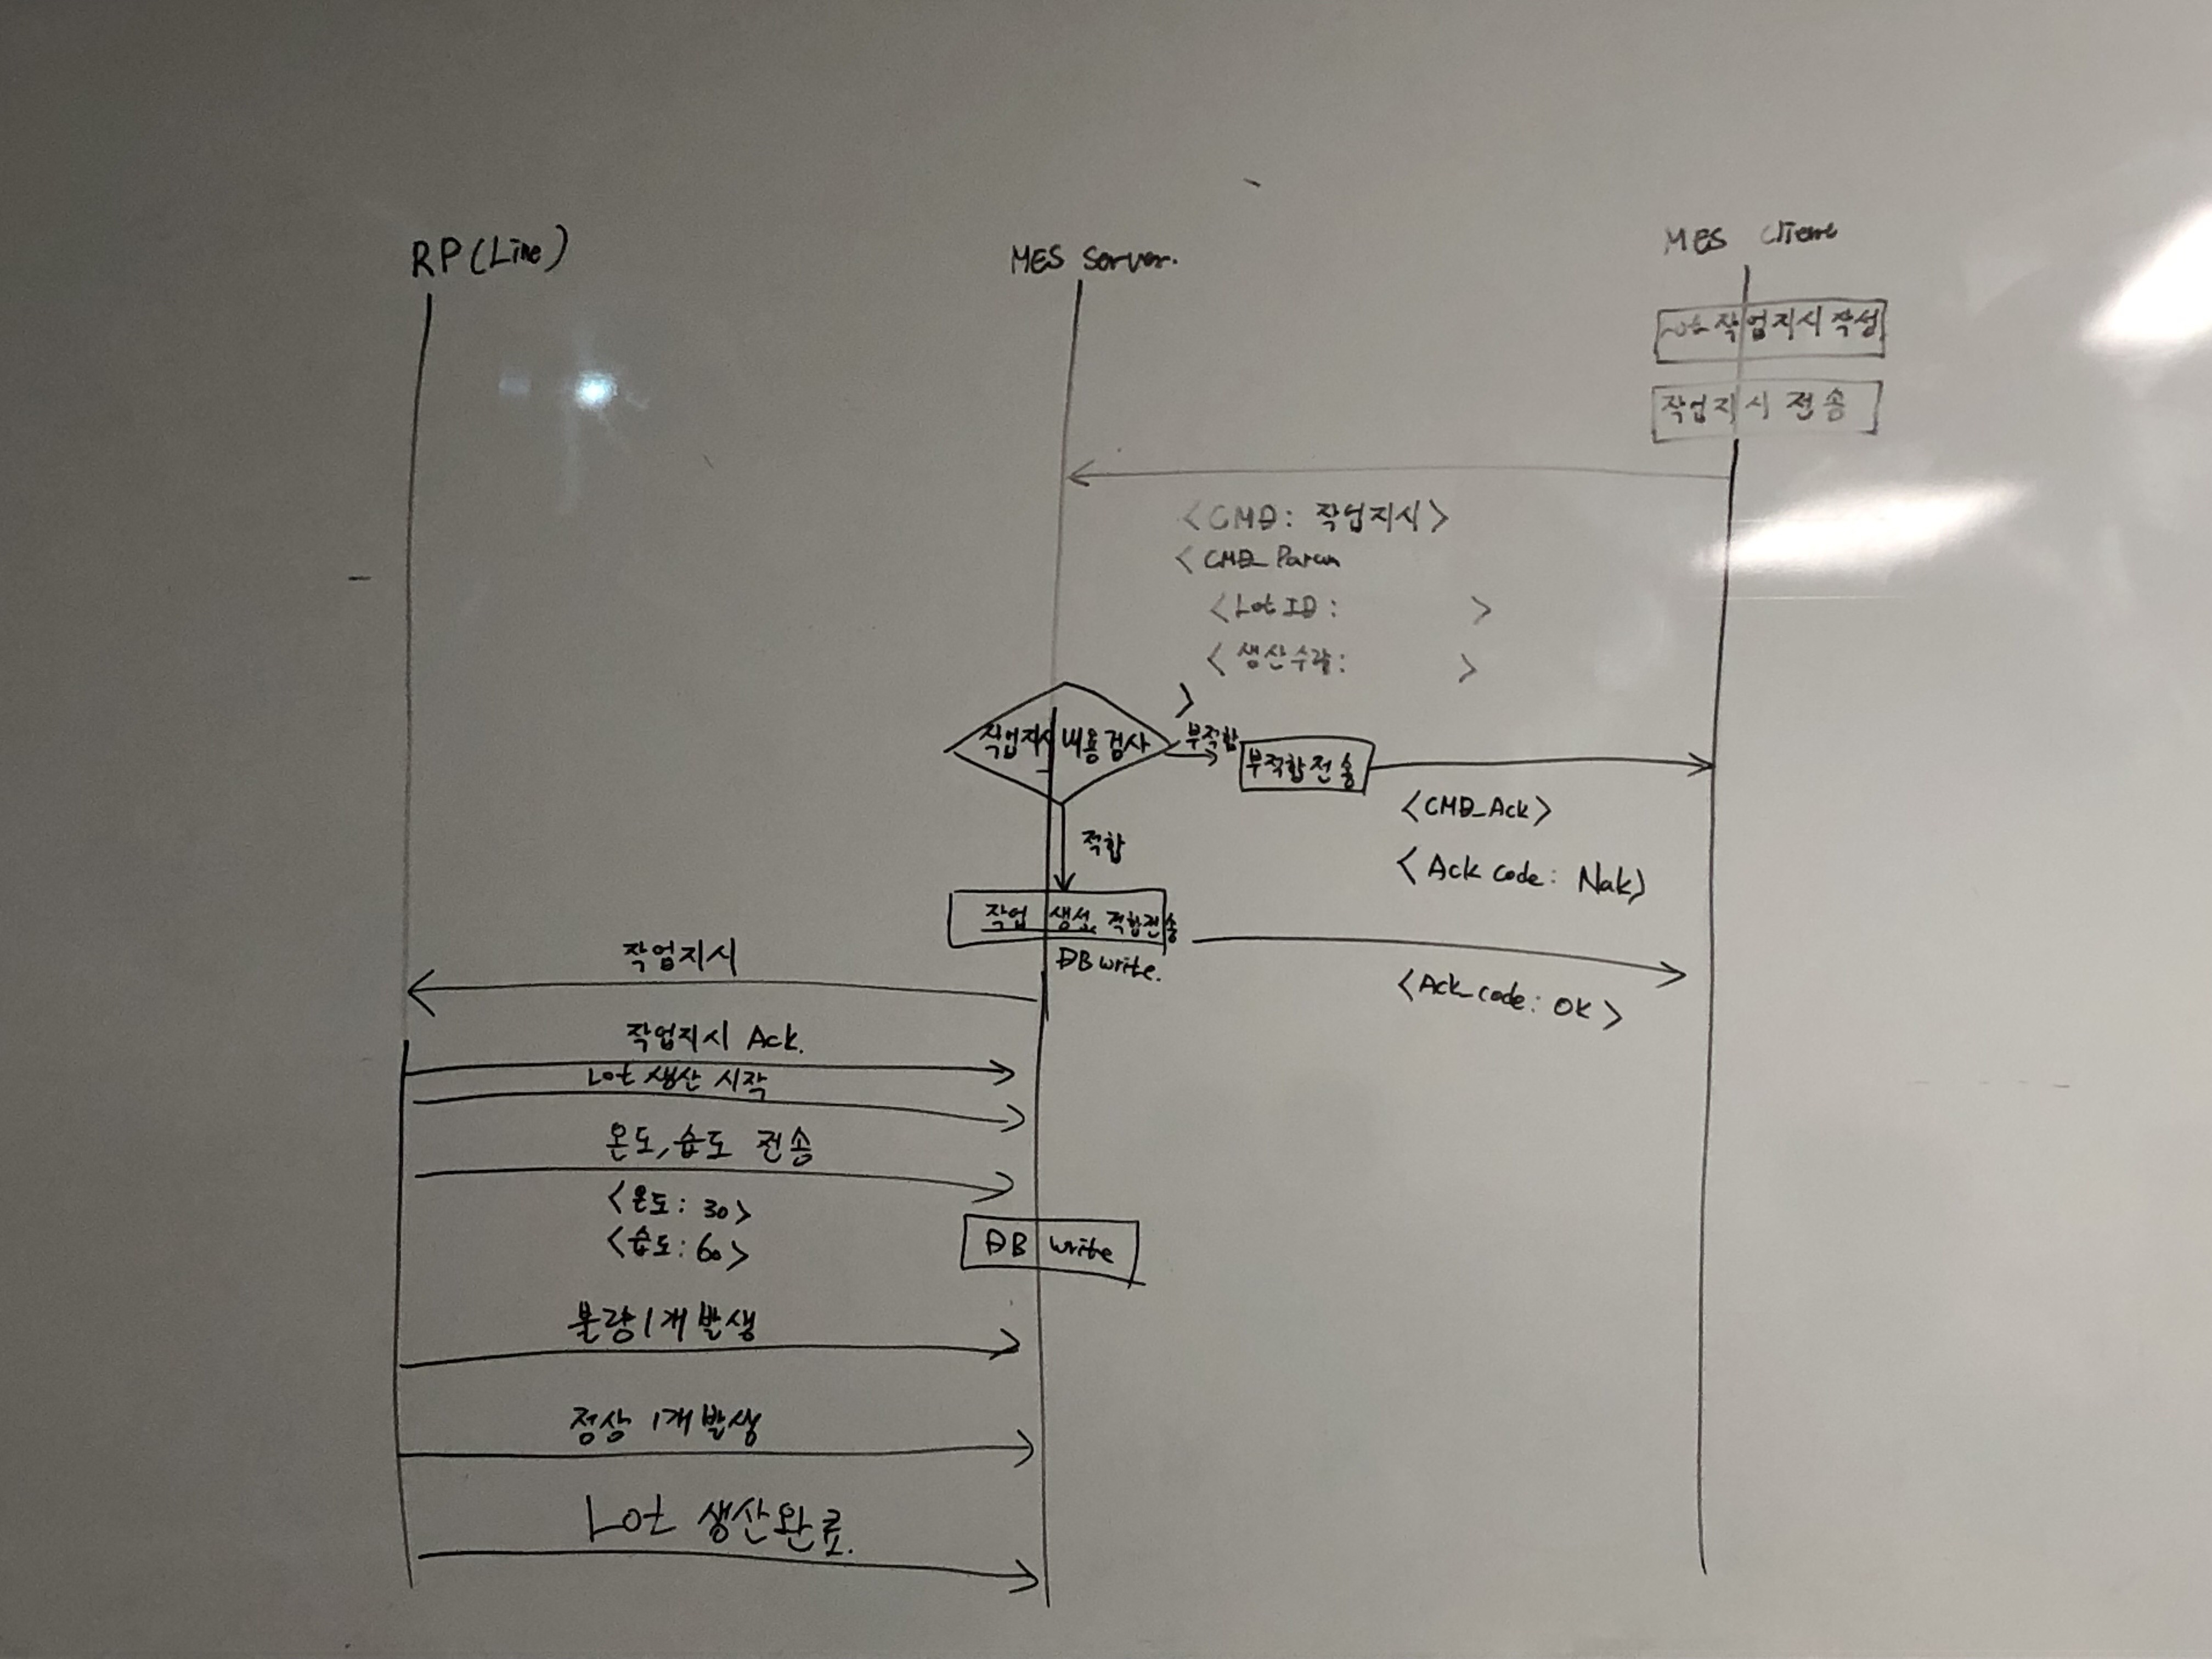 RP(Line)
MES Server.
MES Client
Lot 작업지시 작성
작업지시 전송
<CMD: 작업지시>
<CMD_Param
<Lot ID: >
<생산수량: >
>
작업지시 내용검사
부적합
부적합전송
<CMD_Ack>
<Ack code: Nak>
적합
작업 생성, 적합전송
DB write.
<Ack_code: OK>
작업지시
작업지시 Ack.
Lot 생산 시작
온도,습도 전송
<온도: 30>
<습도: 60>
DB write
불량 1개 발생
정상 1개 발생
Lot 생산완료.